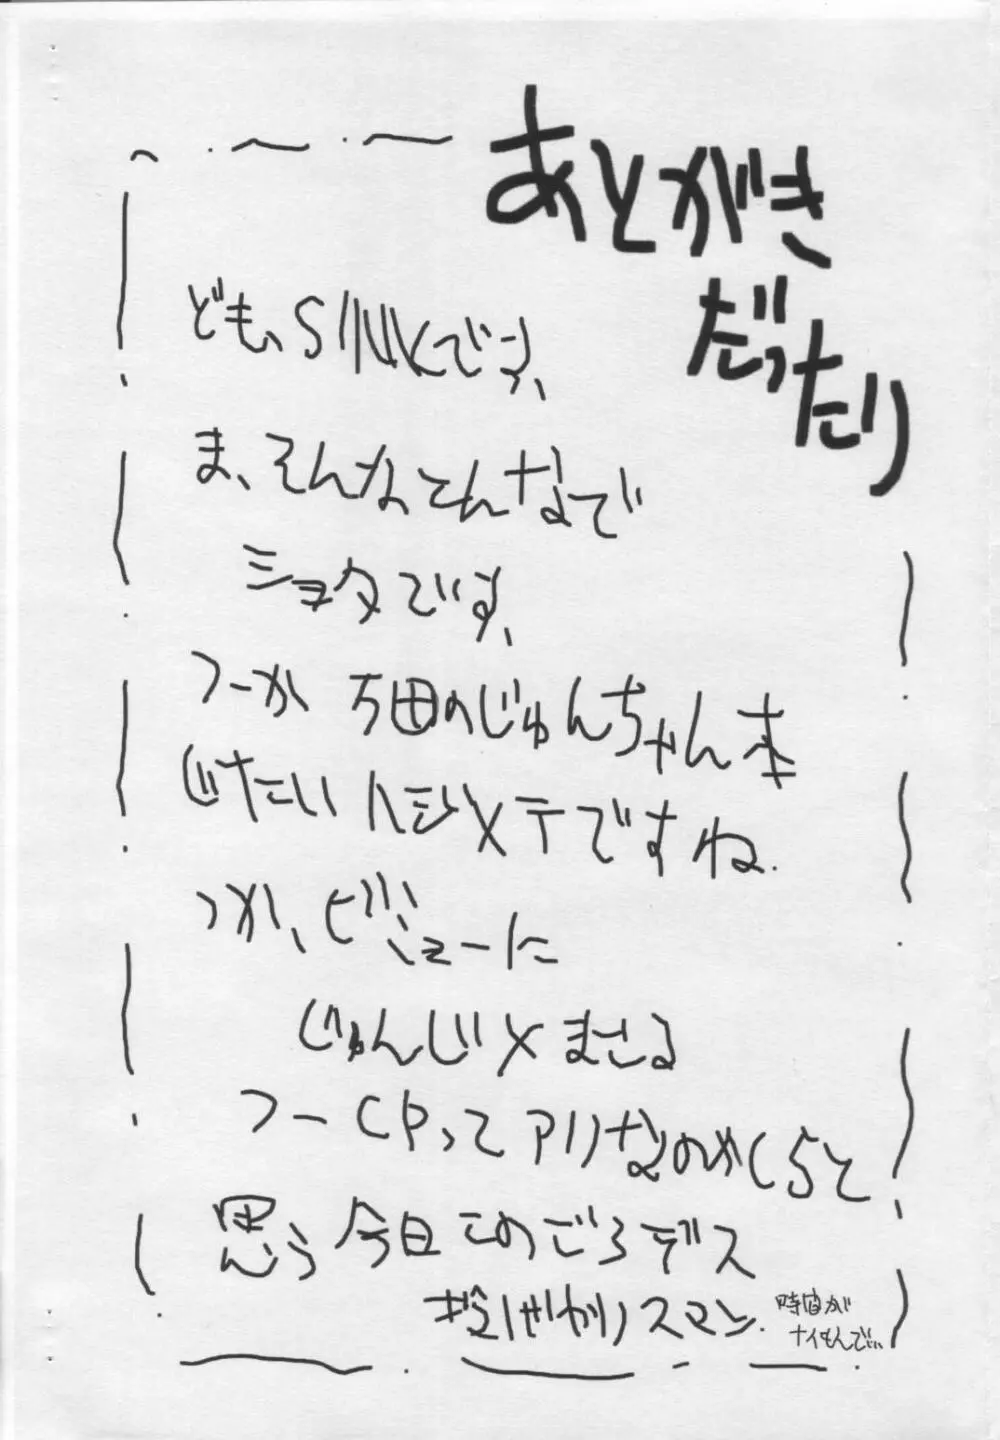 あとがき
だったり
ども、SINKです、
ま、そんなこんなで
ショタです、
つーか 万田のじゅんちゃん本
じたいハジメテですね.
つか、ビジューに
じゅんじ×まさる
つーCPってアリなのかしらと
思う今日このごろデス
リスマン.
時間が
ナイもんで…